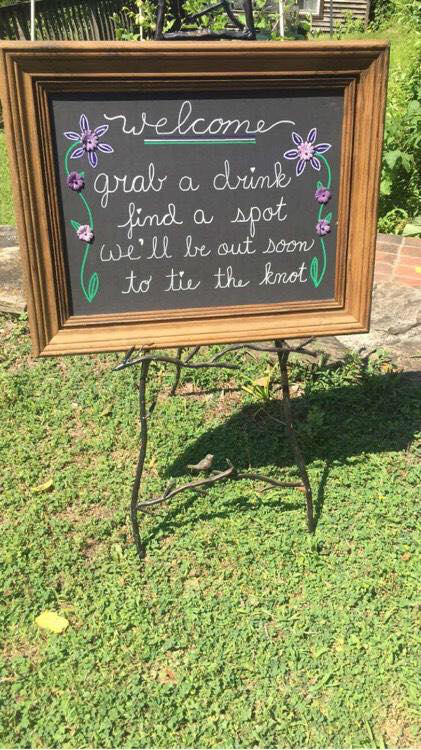 welcome
grab a drink
find a spot
we'll be out soon
to tie the knot